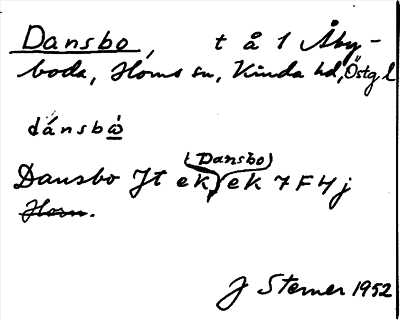 Dansbo, t å 1 Åby-
boda, Horns sn, Kinda hd, Östg l
dánsbὼ
(Dansbo)
Dansbo Jt ek, ek 7F4j
Horn.
J Sterner 1952